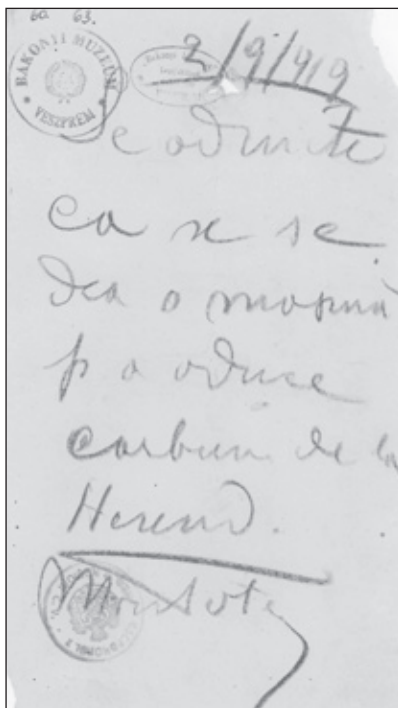 60. 63.
* BAKONYI MÚZEUM * VESZPRÉM
2/9/919
ca se se
dea o mașină
p a aduce
carbuni de la
Herend.